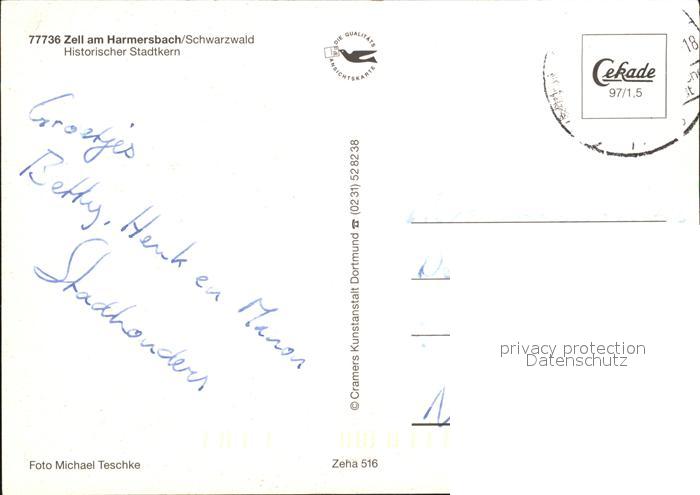 77736 Zell am Harmersbach/Schwarzwald
Historischer Stadtkern
DIE QUALITÄTS
ANSICHTSKARTE
Cekade
97/1,5
18
Groetjes
Betty, Henk en Manon
Stadhouders
© Cramers Kunstanstalt Dortmund ☎ (0231) 528238
privacy protection
Datenschutz
Foto Michael Teschke
Zeha 516